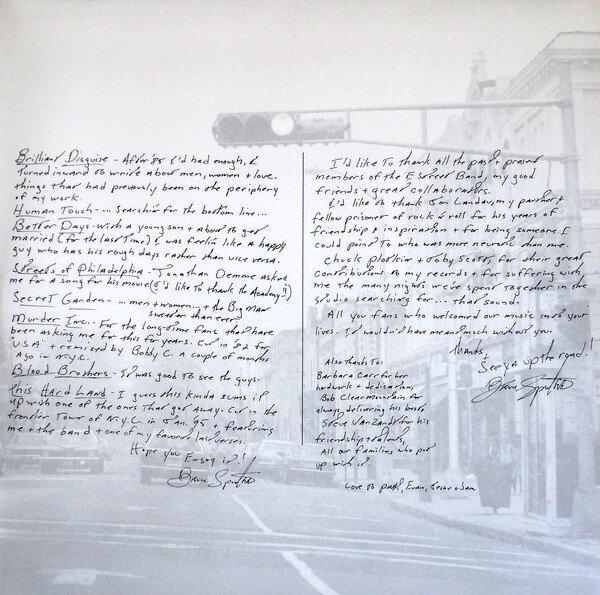 Brilliant Disguise - After '85 I'd had enough, I
turned inward to write about men, women + love.
things that had previously been on the periphery
of my work.
Human Touch - ... searchin' for the bottom line...
Better Days - with a young son + about to get
married (for the last time) I was feelin' like a happy
guy who has his rough days rather than vice versa.
Streets of Philadelphia - Jonathan Demme asked
me for a song for his movie (I'd like to thank the Academy!!)
Secret Garden - ... men + women... + the Big Man
sweeter than ever
Murder Inc. - For the long-time fans that have
been asking me for this for years. Cut in '82 for
"USA" + remixed by Bobby C. a couple of months
ago in N.Y.C.
Blood Brothers - It was good to see the guys.
This Hard Land - I guess this kinda sums it
up with one of the ones that got away. Cut in the
frontier town of N.Y.C. in Jan. 95 + featuring
me + the band + one of my favorite last verses.
Hope you Enjoy it!
Bruce Springsteen
I'd like to thank all the past + present
members of the E Street Band, my good
friends + great collaborators.
I'd like to thank Jon Landau, my partner +
fellow prisoner of rock & roll for his years of
friendship + inspiration + for being someone I
could point to who was more neurotic than me.
Chuck Plotkin + Toby Scott, for their great
contributions to my records + for suffering with
me the many nights we've spent together in the
studio searching for... that sound.
All you fans who welcomed our music into your
lives. It wouldn't have meant much without you.
Thanks,
See ya up the road!
Bruce Springsteen
Also thanks to:
Barbara Carr for her
hardwork + dedication,
Bob Clearmountain for
always delivering his best,
Steve Van Zandt for his
friendship + talents,
All our families who put
up with it.
Love to Patti, Evan, Jessie + Sam